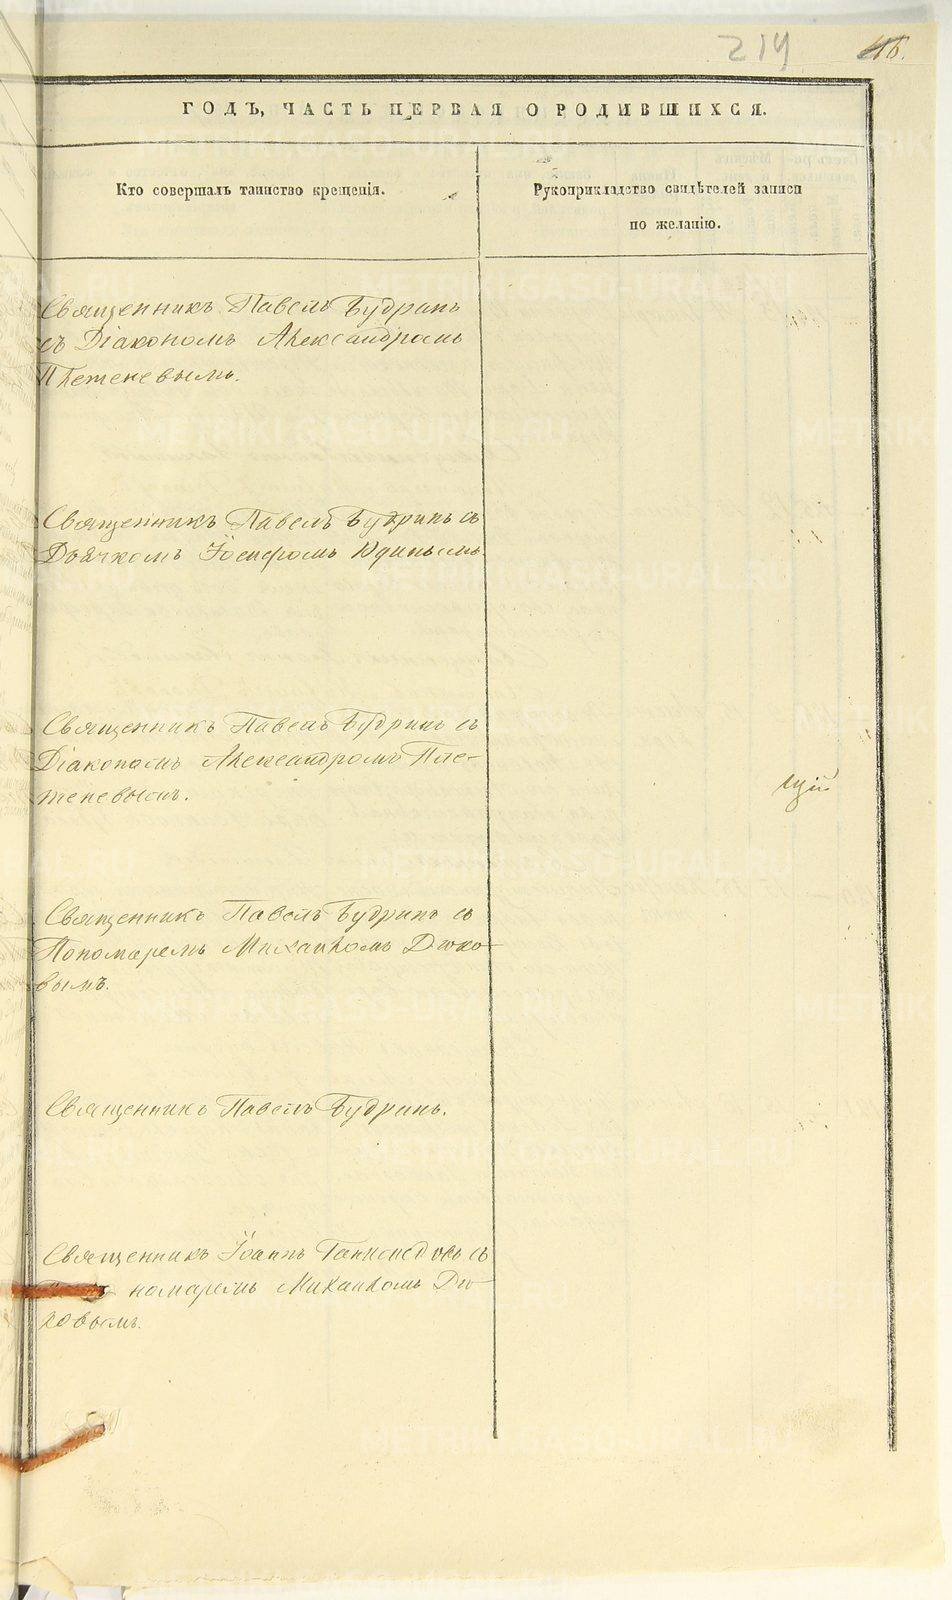 219
ГОДЪ, ЧАСТЬ ПЕРВАЯ О РОДИВШИХСЯ.
Кто совершалъ таинство крещенія.
Рукоприкладство свидѣтелей записи
по желанію.
Священникъ Павелъ Будринъ
съ Діакономъ Александромъ
Плетеневымъ.
Священникъ Павелъ Будринъ съ
Дьячкомъ Іосифомъ Юдинымъ
Священникъ Павелъ Будринъ съ
Діакономъ Александромъ Пле-
теневымъ.
щій
Священникъ Павелъ Будринъ съ
Пономаремъ Михаиломъ Дюко-
вымъ.
Священникъ Павелъ Будринъ.
Священникъ Іоаннъ съ
номаремъ Михаиломъ Дю-
ковымъ.
METRIKI.GASO-URAL.RU